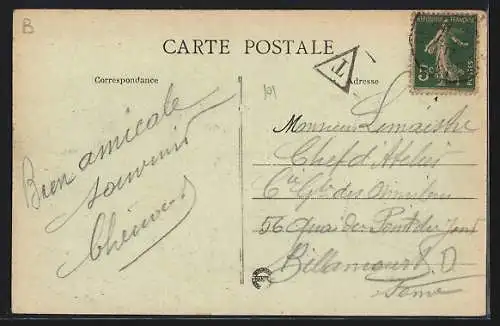 B
CARTE POSTALE
REPUBLIQUE FRANÇAISE
5c
POSTES
T
Correspondance
Adresse
101
Bien amicale
souvenir
Monsieur Lemaistre
Chef d'Atelier
Cie Gle des Omnibus
56 Quai du Point du Jour
Billancourt
Seine